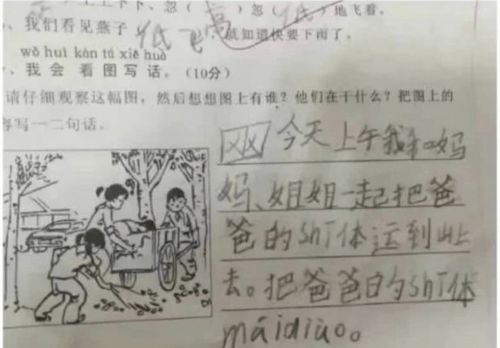 上上下下、忽(高)忽(低)地飞着。
、我们看见燕子低飞 就知道快要下雨了。
wǒ huì kàn tú xiě huà
、我 会 看 图 写 话。(10分)
请仔细观察这幅图,然后想想图上有谁?他们在干什么?把图上的
容写一二句话。
今天上午我和妈
妈、姐姐一起把爸
爸的shī体运到山上
去。把爸爸的shī体
máidiào。